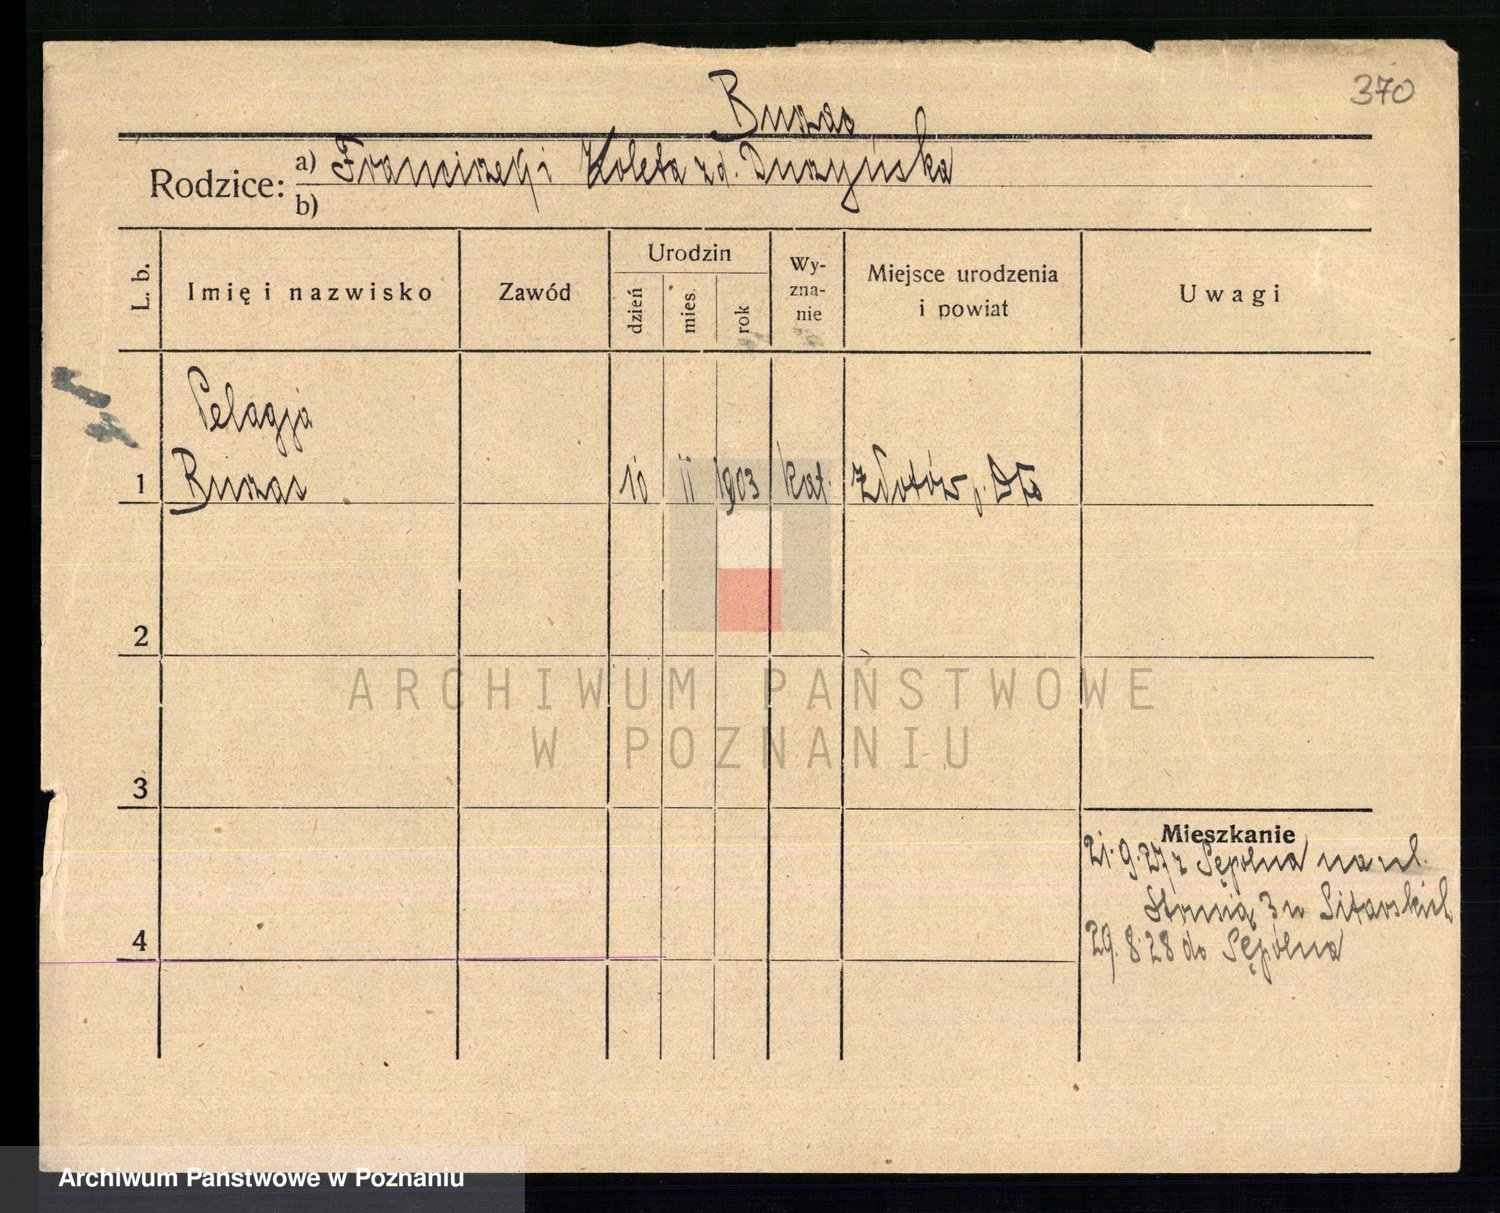 370
Rodzice: a) Franciszek i Koleta zd. Duszyńska
b)
L. b.
Imię i nazwisko
Zawód
Urodzin
dzień
mies.
rok
Wy-
zna-
nie
Miejsce urodzenia
i powiat
Uwagi
Pelagja
1
10 II 1903 kat. Złotów, p.
2
3
4
Mieszkanie
21.9.27 z Sępolna na ul.
3 u Sitarskich
29.8.28 do Sępólna
ARCHIWUM PAŃSTWOWE
W POZNANIU
Archiwum Państwowe w Poznaniu